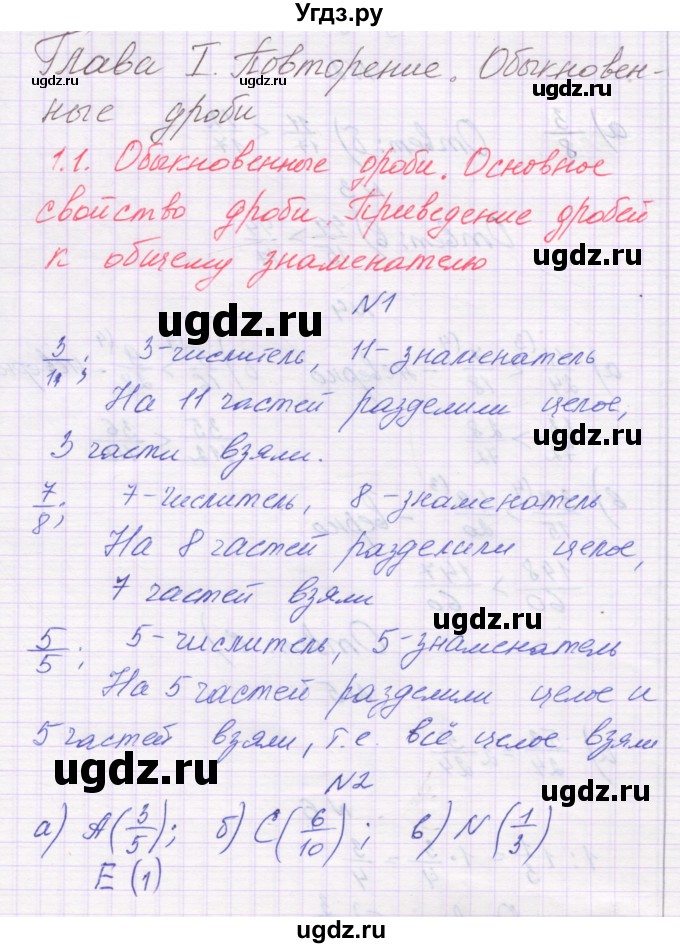 Угдз.ру
Глава I. Повторение. Обыкновен-
ugdz.ru ugdz.ru
ные дроби
ugdz.ru
1.1. Обыкновенные дроби. Основное
свойство дроби. Приведение дробей
к общему знаменателю
ugdz.ru
N1
ugdz.ru
3/11; 3-числитель, 11-знаменатель
На 11 частей разделили целое,
ugdz.ru
3 части взяли.
7/8; 7-числитель, 8-знаменатель
На 8 частей разделили целое,
ugdz.ru
7 частей взяли
5/5; 5-числитель, 5-знаменатель
ugdz.ru
На 5 частей разделили целое и
5 частей взяли, т.е. всё целое взяли
ugdz.ru
N2
ugdz.ru
а) A(3/5); б) C(6/10); в) N(1/3)
E(1)
ugdz.ru
Угдз.ру